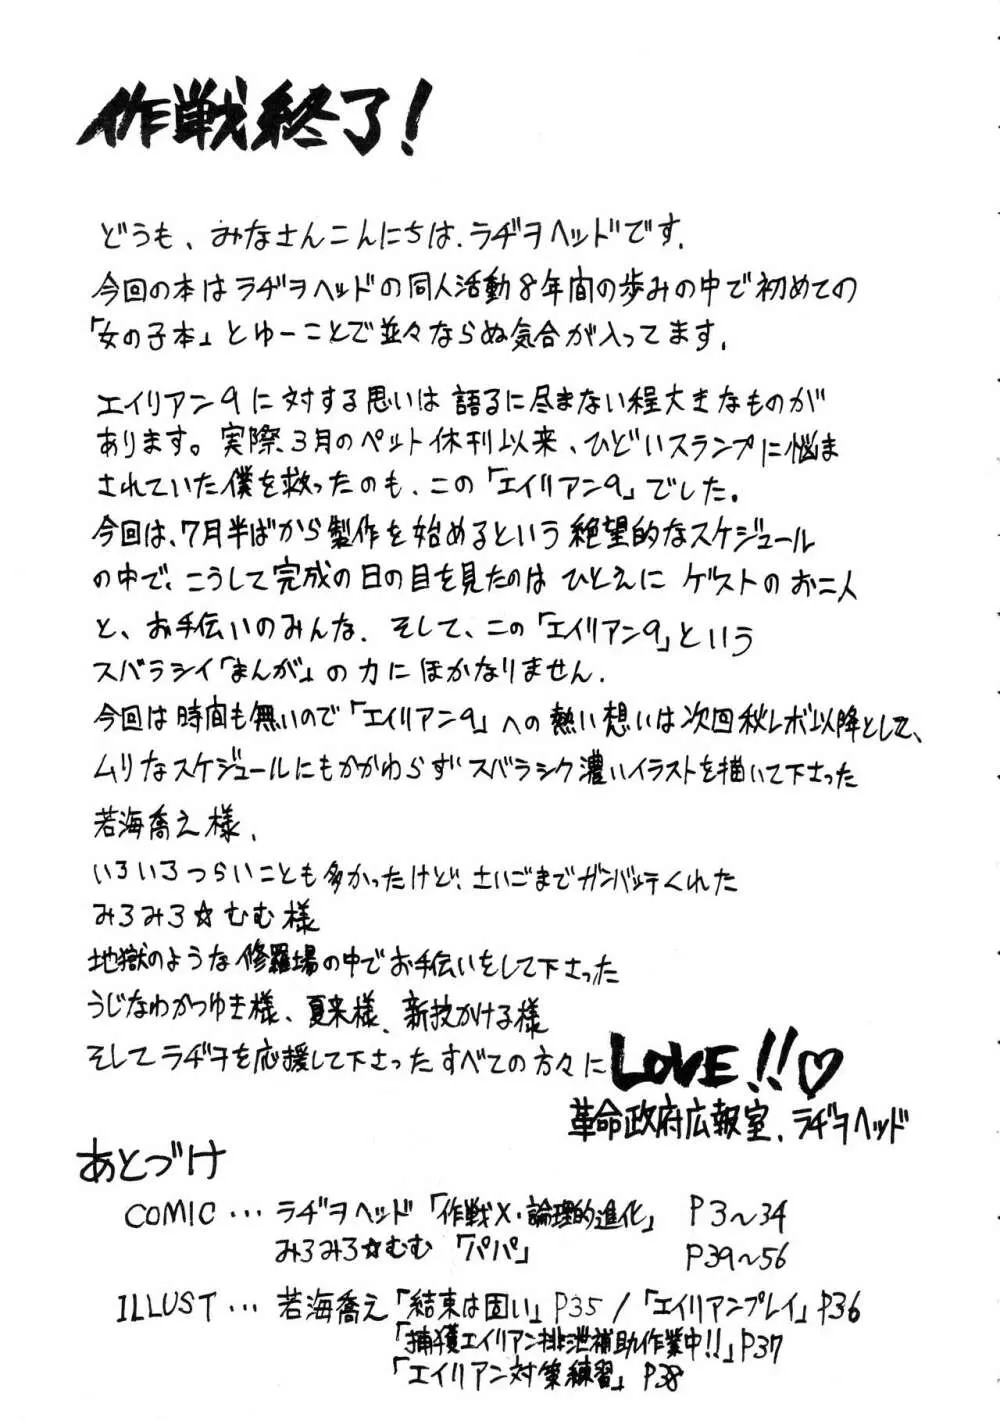 作戦終了!
どうも、みなさんこんにちは、ラヂヲヘッドです.
今回の本はラヂヲヘッドの同人活動8年間の歩みの中で初めての
「女の子本」とゆーことで並々ならぬ気合が入ってます.
エイリアン9に対する思いは語るに尽きない程大きなものが
あります。実際3月のペット休刊以来、ひどいスランプに悩ま
されていた僕を救ったのも、この「エイリアン9」でした。
今回は、7月半ばから製作を始めるという絶望的なスケジュール
の中で、こうして完成の日の目を見たのはひとえにゲストのお二人
と、お手伝いのみんな. そして、この「エイリアン9」という
スバラシイ「まんが」の力にほかなりません.
今回は時間も無いので「エイリアン9」への熱い想いは次回秋レボ以降として、
ムリなスケジュールにもかかわらずスバラシク濃いイラストを描いて下さった
若海喬え様.
いろいろつらいことも多かったけど、さいごまでガンバッテくれた
みろみろ☆むむ様
地獄のような修羅場の中でお手伝いをして下さった
うじなわかつゆき様、夏来様、新技かける様
そしてラヂヲを応援して下さったすべての方々にLOVE!!♡
革命政府広報室、ラヂヲヘッド
あとづけ
COMIC … ラヂヲヘッド「作戦X・論理的進化」 P3〜34
みろみろ☆むむ「パパ」 P39〜56
ILLUST … 若海喬え「結束は固い」P35/「エイリアンプレイ」P36
「捕獲エイリアン排泄補助作業中!!」P37
「エイリアン対策練習」P38